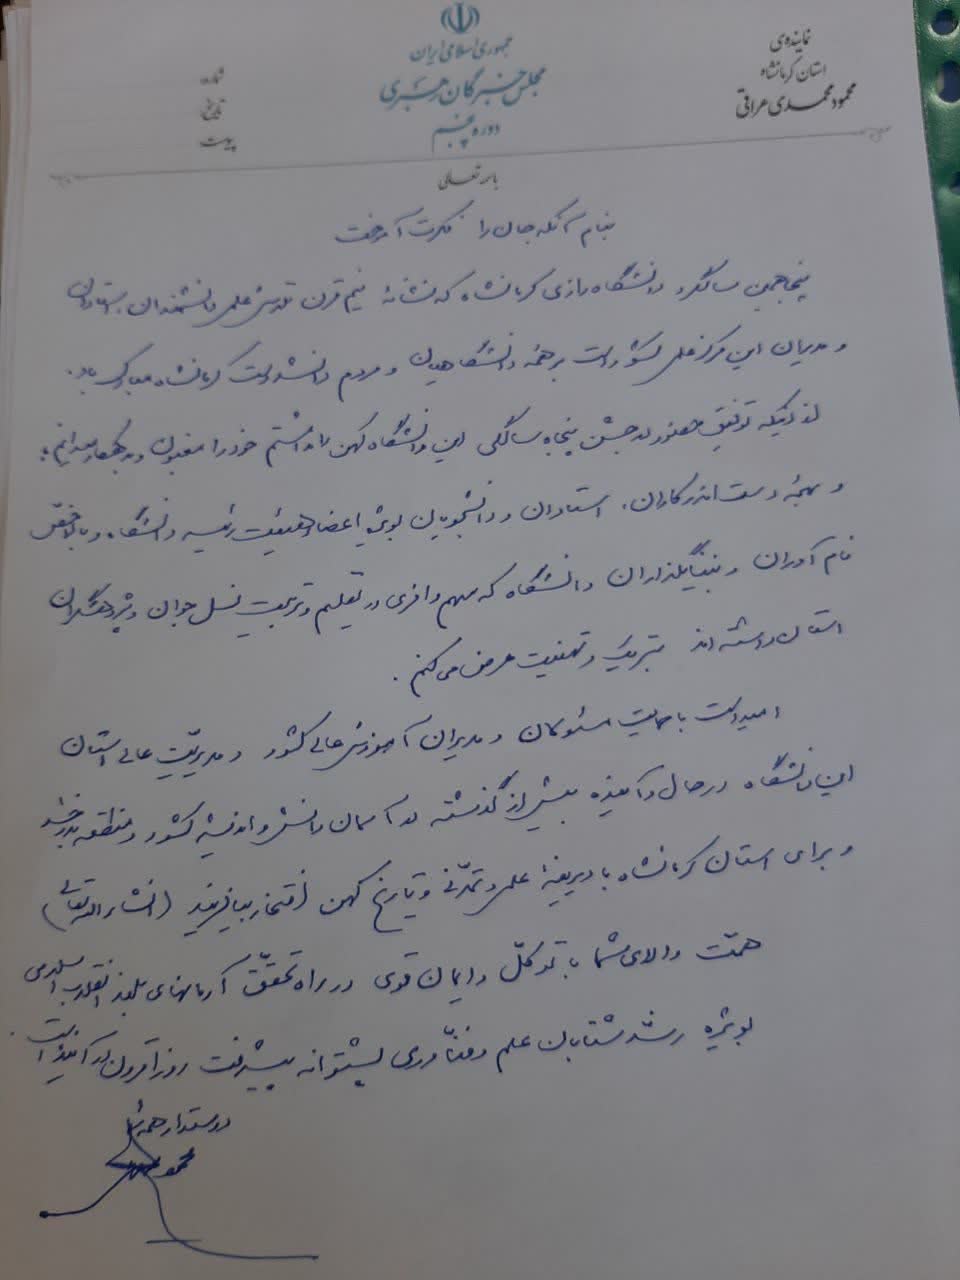 جمهوری اسلامی ایران
مجلس خبرگان رهبری
دوره پنجم
نماینده‌ی
استان کرمانشاه
محمود محمدی عراقی
شماره
تاریخ
پیوست
باسمه تعالی
بنام آنکه جان را فکرت آموخت
پنجاهمین سالگرد دانشگاه رازی کرمانشاه که نشانهٔ نیم قرن تلاش علمی دانشمندان، استادان
و مدیران این مرکز علمی کشور است بر همهٔ دانشگاهیان و مردم دانشدوست کرمانشاه مبارک باد.
از اینکه توفیق حضور در جشن پنجاه سالگی این دانشگاه کهن را نداشتم خود را مغبون و بدهکار میدانم؛
و بهمهٔ دست اندرکاران، استادان و دانشجویان بویژه اعضاء هیئت رئیسه دانشگاه و بالاخص
نام آوران و بنیانگذاران دانشگاه که سهم وافری در تعلیم و تربیت نسل جوان و پژوهشگران
استان داشته اند تبریک و تهنیت عرض می‌کنم.
امید است با حمایت مسئولان و مدیران آموزش عالی کشور و مدیریت عالی استان
این دانشگاه در حال و آینده بیش از گذشته در آسمان دانش و اندیشه کشور و منطقه بدرخشد
و برای استان کرمانشاه با دیرینهٔ علمی و تمدّنی و تاریخ کهن افتخار بیافریند (انشاء الله تعالی)
همّت والای شما با توکّل و ایمان قوی در راه تحقّق آرمانهای بلند انقلاب اسلامی
بویژه رشد شتابان علم و فنّاوری پشتوانه پیشرفت روزافزون در آینده است.
دوستدار همه شما
محمود